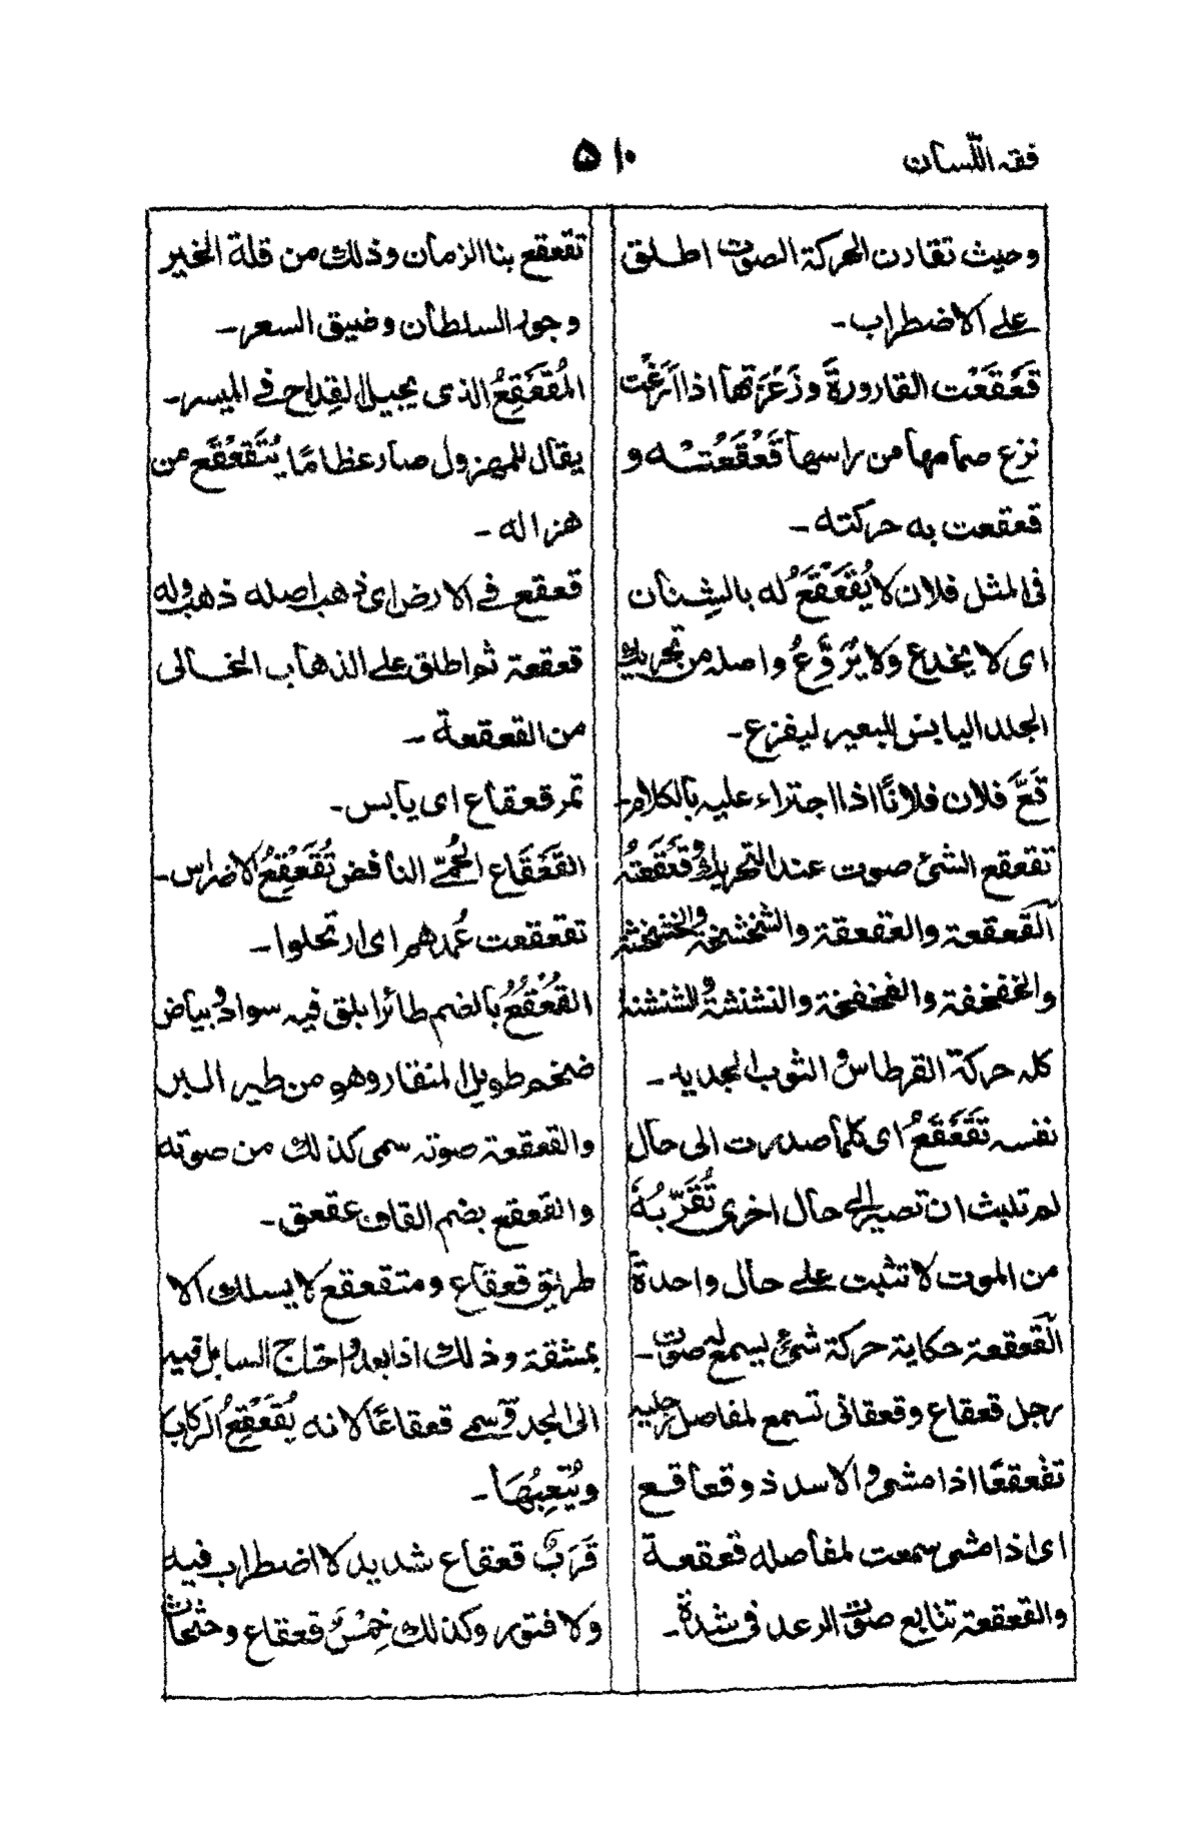 فقہ اللّسان
۵۱۰
وحیث تقارن الحرکة الصوت اطلق
علی الاضطراب۔
قَعقَعْت القارورةَ وزَعْزَعْتها اذا اَرَغْت
نزع صمامها من راسها قَعْقَعْتُه و
قعقعت به حرکته۔
فی المثل فلان لا یُقَعْقَعُ له بالشِنان
ای لا یخدع ولا یُرَوَّعُ واصله من تحریک
الجلد الیابس للبعیر لیفزع۔
قَعَّ فلان فلانًا اذا اجتراء علیہ بالکلام۔
تقعقع الشئ صوت عند التحریک وقَعْقَعْتُہ
اَلقعقعة والعقعقة والشخشخة والخشخشة
والخفخفة والفخفخة والنشنشة والشنشنة
کلہ حرکة القرطاس والثوب الجدید۔
نفسہ تَقَعْقَعُ ای کلما صدرت الی حال
لم تلبث ان تصیر الی حال اخری تُقَرِّبُهُ
من الموت لا تثبت علی حال واحدة
اَلقعقعة حکایة حرکة شئ یسمع لہ صوت۔
رجل قعقاع وقعقانی تسمع لمفاصل رجلیہ
تقعقعًا اذا مشی والاسد ذو قعاقع
ای اذا مشی سمعت لمفاصله قعقعة
والقعقعة تتابع صوت الرعد فی شدة۔
تقعقع بنا الزمان وذلک من قلة الخیر
وجور السلطان وضیق السعر۔
المُقَعْقِعُ الذی یجیل القِداح فی المیسر۔
یقال للمهزول صار عظامًا یُتَقَعْقَع من
هزاله۔
قعقع فی الارض ای ذهب اصله ذهب وله
قعقعة ثم اطلق علی الذهاب الخالی
من القعقعة۔
تمر قعقاع ای یابس۔
القَعْقَاع الحُمّی النافض تُقَعْقِعُ الاضراس۔
تقعقعت عُمدهم ای ارتحلوا۔
القُعْقُعُ بالضم طائر ابلق فیہ سواد وبیاض
ضخم طویل المنقار وهو من طیر البر
والقعقعة صوتہ سمی کذلک من صوته
والقعقع بضم القاف عقعق۔
طریق قعقاع ومتقعقع لا یسلک الا
بمشقة وذلک اذا بعد واحتاج السابل فیہ
الی الجد وسمی قعقاعًا لانه یُقَعْقِعُ الرکابَ
ویُتْعِبُهَا۔
قَرَبٌ قعقاع شدید لا اضطراب فیہ
ولا فتور وکذلک خِمْسٌ قعقاع وحثحاث